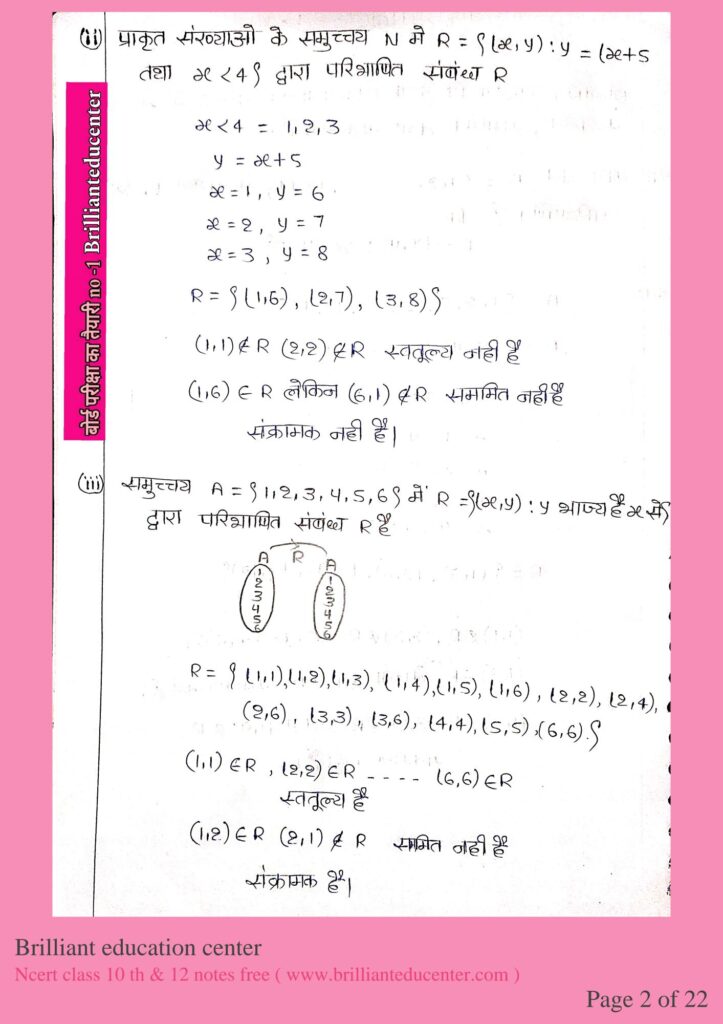 (ii) प्राकृत संख्याओ के समुच्चय N मे R = {(x, y) : y = (x+5
तथा x < 4} द्वारा परिभाषित संबंध R
x < 4 = 1, 2, 3
y = x+5
x = 1, y = 6
x = 2, y = 7
x = 3, y = 8
R = {(1,6), (2,7), (3,8)}
(1,1) ∉ R (2,2) ∉ R स्वतुल्य नही है
(1,6) ∈ R लेकिन (6,1) ∉ R सममित नही है
संक्रामक नही है।
बोर्ड परीक्षा का तैयारी no -1 Brillianteducenter
(iii) समुच्चय A = {1, 2, 3, 4, 5, 6} में R = {(x,y) : y भाज्य है x से}
द्वारा परिभाषित संबंध R है
A R A
1 1
2 2
3 3
4 4
5 5
6 6
R = {(1,1),(1,2),(1,3), (1,4),(1,5), (1,6), (2,2), (2,4),
(2,6), (3,3), (3,6), (4,4), (5,5), (6,6).}
(1,1) ∈ R, (2,2) ∈ R ---- (6,6) ∈ R
स्वतुल्य है
(1,2) ∈ R (2,1) ∉ R समित नही है
संक्रामक है।
Brilliant education center
Ncert class 10 th & 12 notes free ( www.brillianteducenter.com )
Page 2 of 22